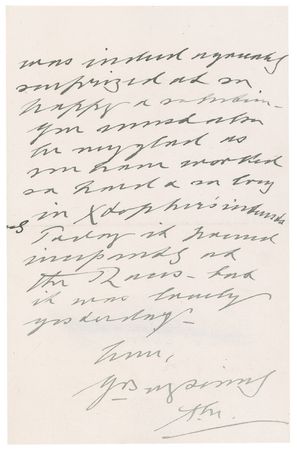 was indeed agreeably
surprized at so
happy a solution -
You must also
be very glad as
you have worked
so hard & so long
in Xtopher's interests
Today it poured
at
the Races - but
it was lovely
yesterday -

Yrs